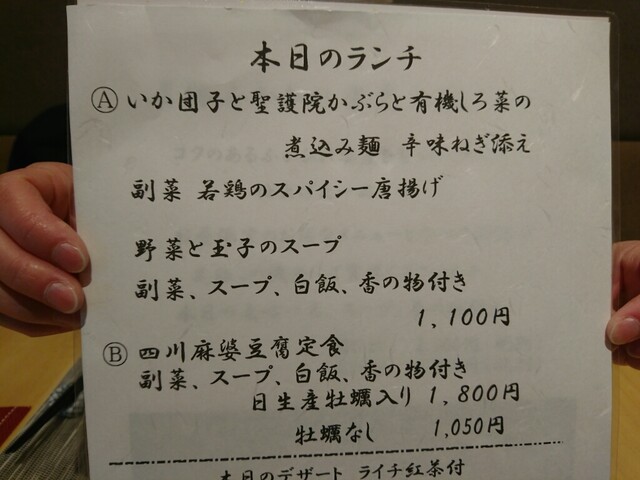 本日のランチ
Ⓐ いか団子と聖護院かぶらと有機しろ菜の
煮込み麺 辛味ねぎ添え
副菜 若鶏のスパイシー唐揚げ
野菜と玉子のスープ
副菜、スープ、白飯、香の物付き
1,100円
Ⓑ 四川麻婆豆腐定食
副菜、スープ、白飯、香の物付き
日生産牡蠣入り 1,800円
牡蠣なし 1,050円
本日のデザート ライチ紅茶付